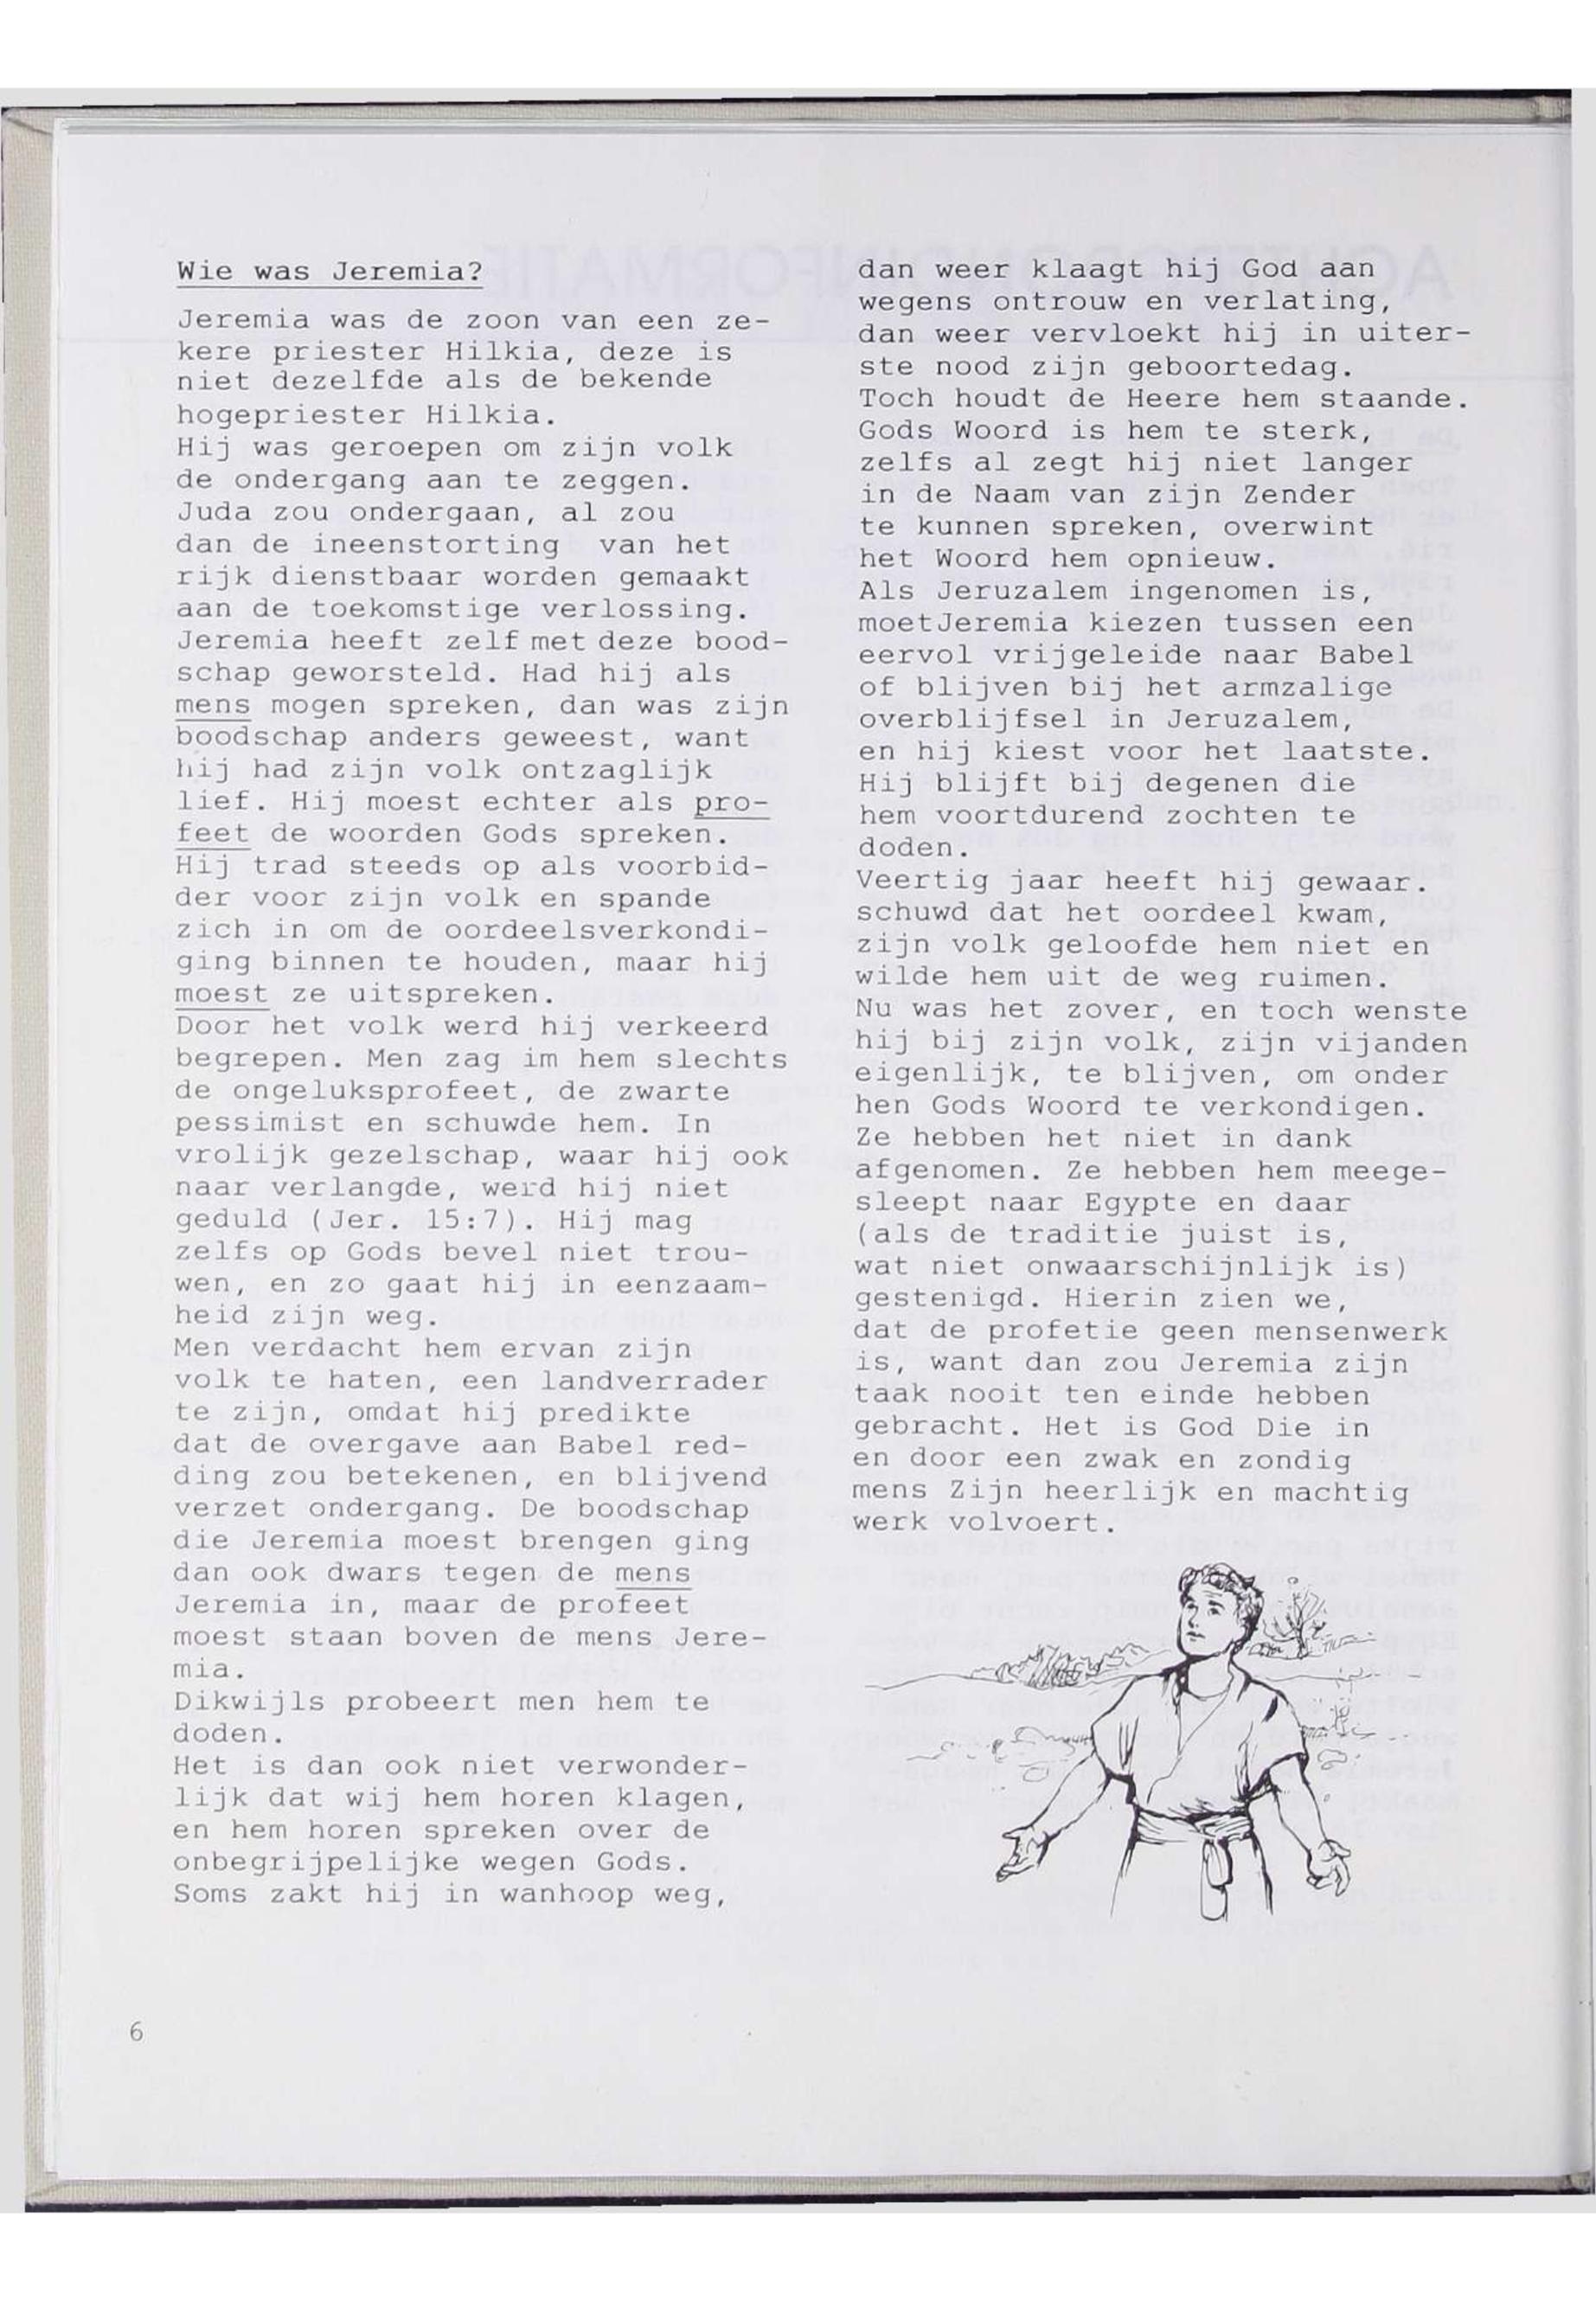 Wie was Jeremia?
Jeremia was de zoon van een ze-
kere priester Hilkia, deze is
niet dezelfde als de bekende
hogepriester Hilkia.
Hij was geroepen om zijn volk
de ondergang aan te zeggen.
Juda zou ondergaan, al zou
dan de ineenstorting van het
rijk dienstbaar worden gemaakt
aan de toekomstige verlossing.
Jeremia heeft zelf met deze bood-
schap geworsteld. Had hij als
mens mogen spreken, dan was zijn
boodschap anders geweest, want
hij had zijn volk ontzaglijk
lief. Hij moest echter als pro-
feet de woorden Gods spreken.
Hij trad steeds op als voorbid-
der voor zijn volk en spande
zich in om de oordeelsverkondi-
ging binnen te houden, maar hij
moest ze uitspreken.
Door het volk werd hij verkeerd
begrepen. Men zag im hem slechts
de ongeluksprofeet, de zwarte
pessimist en schuwde hem. In
vrolijk gezelschap, waar hij ook
naar verlangde, werd hij niet
geduld (Jer. 15:7). Hij mag
zelfs op Gods bevel niet trou-
wen, en zo gaat hij in eenzaam-
heid zijn weg.
Men verdacht hem ervan zijn
volk te haten, een landverrader
te zijn, omdat hij predikte
dat de overgave aan Babel red-
ding zou betekenen, en blijvend
verzet ondergang. De boodschap
die Jeremia moest brengen ging
dan ook dwars tegen de mens
Jeremia in, maar de profeet
moest staan boven de mens Jere-
mia.
Dikwijls probeert men hem te
doden.
Het is dan ook niet verwonder-
lijk dat wij hem horen klagen,
en hem horen spreken over de
onbegrijpelijke wegen Gods.
Soms zakt hij in wanhoop weg,
dan weer klaagt hij God aan
wegens ontrouw en verlating,
dan weer vervloekt hij in uiter-
ste nood zijn geboortedag.
Toch houdt de Heere hem staande.
Gods Woord is hem te sterk,
zelfs al zegt hij niet langer
in de Naam van zijn Zender
te kunnen spreken, overwint
het Woord hem opnieuw.
Als Jeruzalem ingenomen is,
moetJeremia kiezen tussen een
eervol vrijgeleide naar Babel
of blijven bij het armzalige
overblijfsel in Jeruzalem,
en hij kiest voor het laatste.
Hij blijft bij degenen die
hem voortdurend zochten te
doden.
Veertig jaar heeft hij gewaar.
schuwd dat het oordeel kwam,
zijn volk geloofde hem niet en
wilde hem uit de weg ruimen.
Nu was het zover, en toch wenste
hij bij zijn volk, zijn vijanden
eigenlijk, te blijven, om onder
hen Gods Woord te verkondigen.
Ze hebben het niet in dank
afgenomen. Ze hebben hem meege-
sleept naar Egypte en daar
(als de traditie juist is,
wat niet onwaarschijnlijk is)
gestenigd. Hierin zien we,
dat de profetie geen mensenwerk
is, want dan zou Jeremia zijn
taak nooit ten einde hebben
gebracht. Het is God Die in
en door een zwak en zondig
mens Zijn heerlijk en machtig
werk volvoert.
6